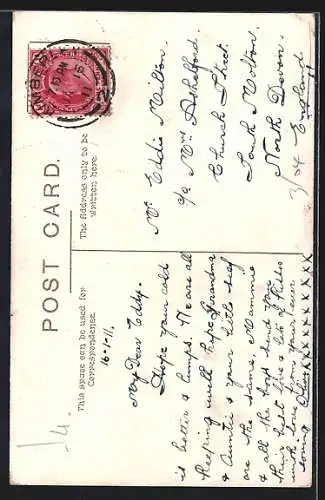 POST CARD.
This space can be used for
Correspondence.
The Address only to be
written here.
16.1.11.
My Dear Eddy.
Hope your cold
is better & lumps. We are all
keeping well hope Grandma
& Auntie & your little self
are the same, Mamma
& all the
their best love & a lot of kisses
with love from your ever
loving
XXXXXXXXX
Mr Eddie Milton.
c/o Mrs Ashelford.
Church Street.
South Molton.
North Devon.
England.
3/04
14.